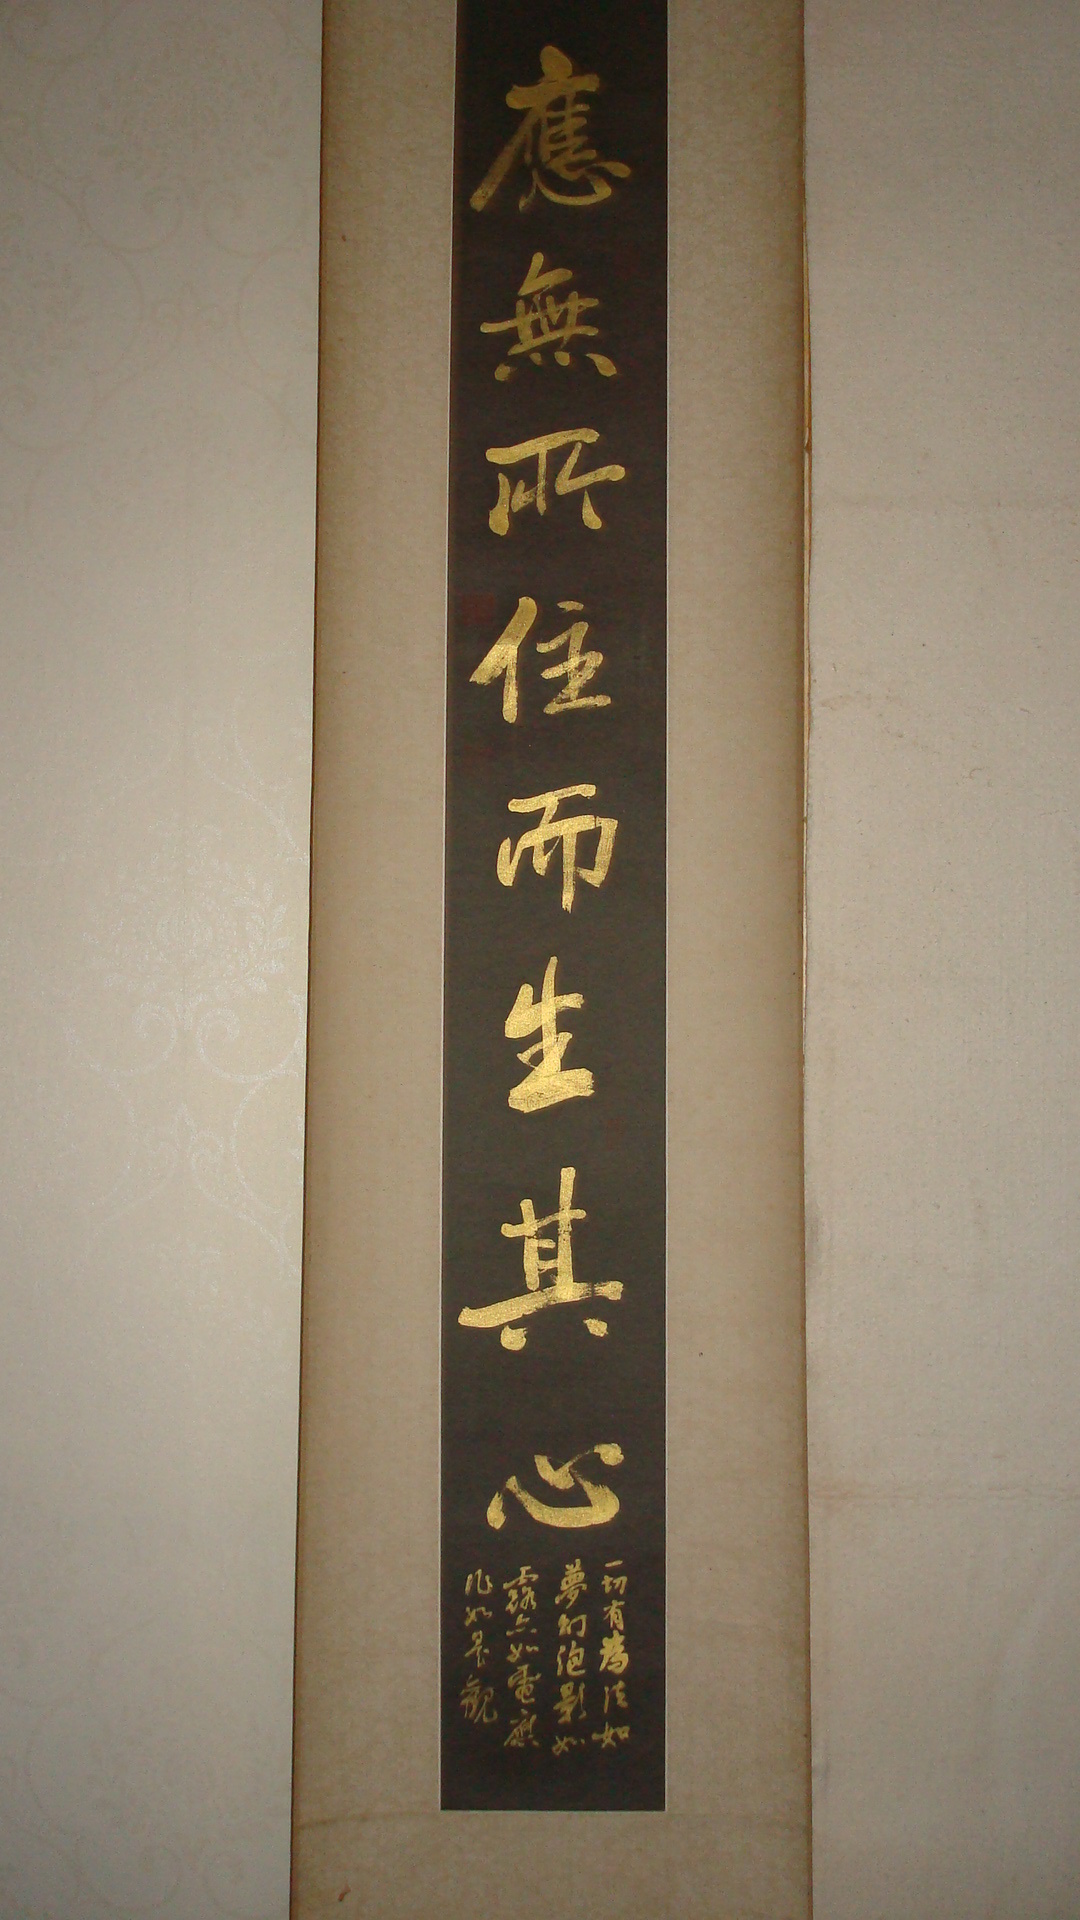 應無所住而生其心
一切有為法如
夢幻泡影如
露亦如電應
作如是觀